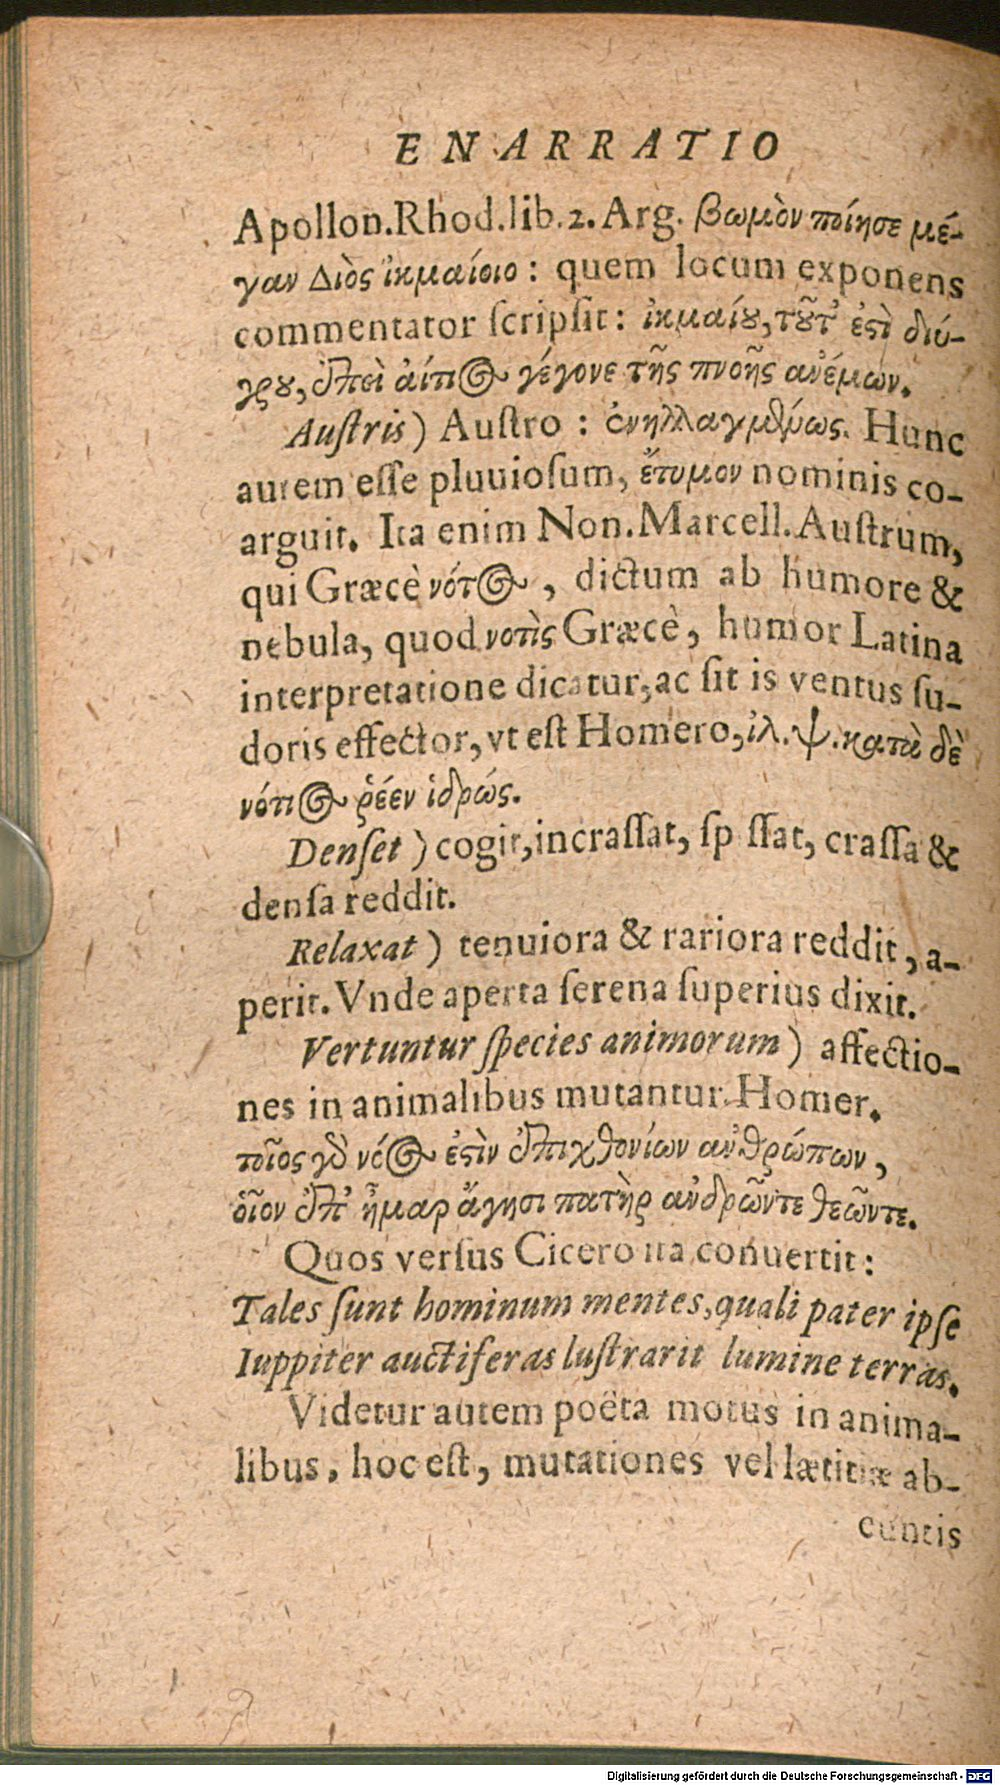 ENARRATIO
Apollon.Rhod.lib.2. Arg. βωμὸν ποίησε μέ-
γαν Διὸς ἰκμαίοιο : quem locum exponens
commentator scripsit: ἰκμαίου, τοῦτ' ἐστὶ διύ-
γρου, ἐπεὶ αἴτιος γέγονε τῆς πνοῆς ἀνέμων.
Austris) Austro : ἐνηλλαγμένως. Hunc
autem esse pluuiosum, ἔτυμον nominis co-
arguit. Ita enim Non.Marcell.Austrum,
qui Græcè νότος, dictum ab humore &
nebula, quod νοτὶς Græcè, humor Latina
interpretatione dicatur, ac sit is ventus su-
doris effector, vt est Homero, ἰλ.ψ.κατὰ δὲ
νότιος ῥέεν ἱδρώς.
Denset) cogit, incrassat, sp ssat, crassa &
densa reddit.
Relaxat) tenuiora & rariora reddit, a-
perit. Vnde aperta serena superius dixit.
Vertuntur species animorum) affectio-
nes in animalibus mutantur. Homer.
τοῖος γὸ νόος ἐστὶν ἐπιχθονίων ἀνθρώπων,
οἷον ἐπ' ἦμαρ ἄγησι πατὴρ ἀνδρῶντε θεῶντε.
Quos versus Cicero ita conuertit:
Tales sunt hominum mentes, quali pater ipse
Iuppiter auctiferas lustrarit lumine terras.
Videtur autem poëta motus in anima-
libus, hoc est, mutationes vel lætitiæ ab-
euntis
Digitalisierung gefördert durch die Deutsche Forschungsgemeinschaft - DFG